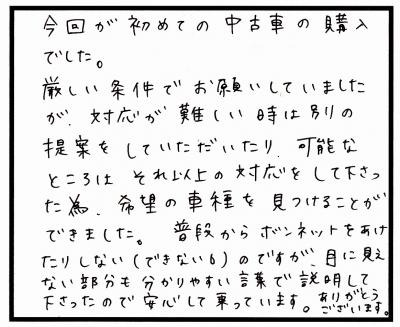 今回が初めての中古車の購入
でした。
厳しい条件でお願いしていました
が、対応が難しい時は別の
提案をしていただいたり、可能な
ところは それ以上の対応をして下さっ
た為、希望の車種を見つけることが
できました。 普段からボンネットをあけ
たりしない(できない6)のですが、目に見え
ない部分も分かりやすい言葉で説明して
下さったので安心して乗っています。ありがとう
ございます。